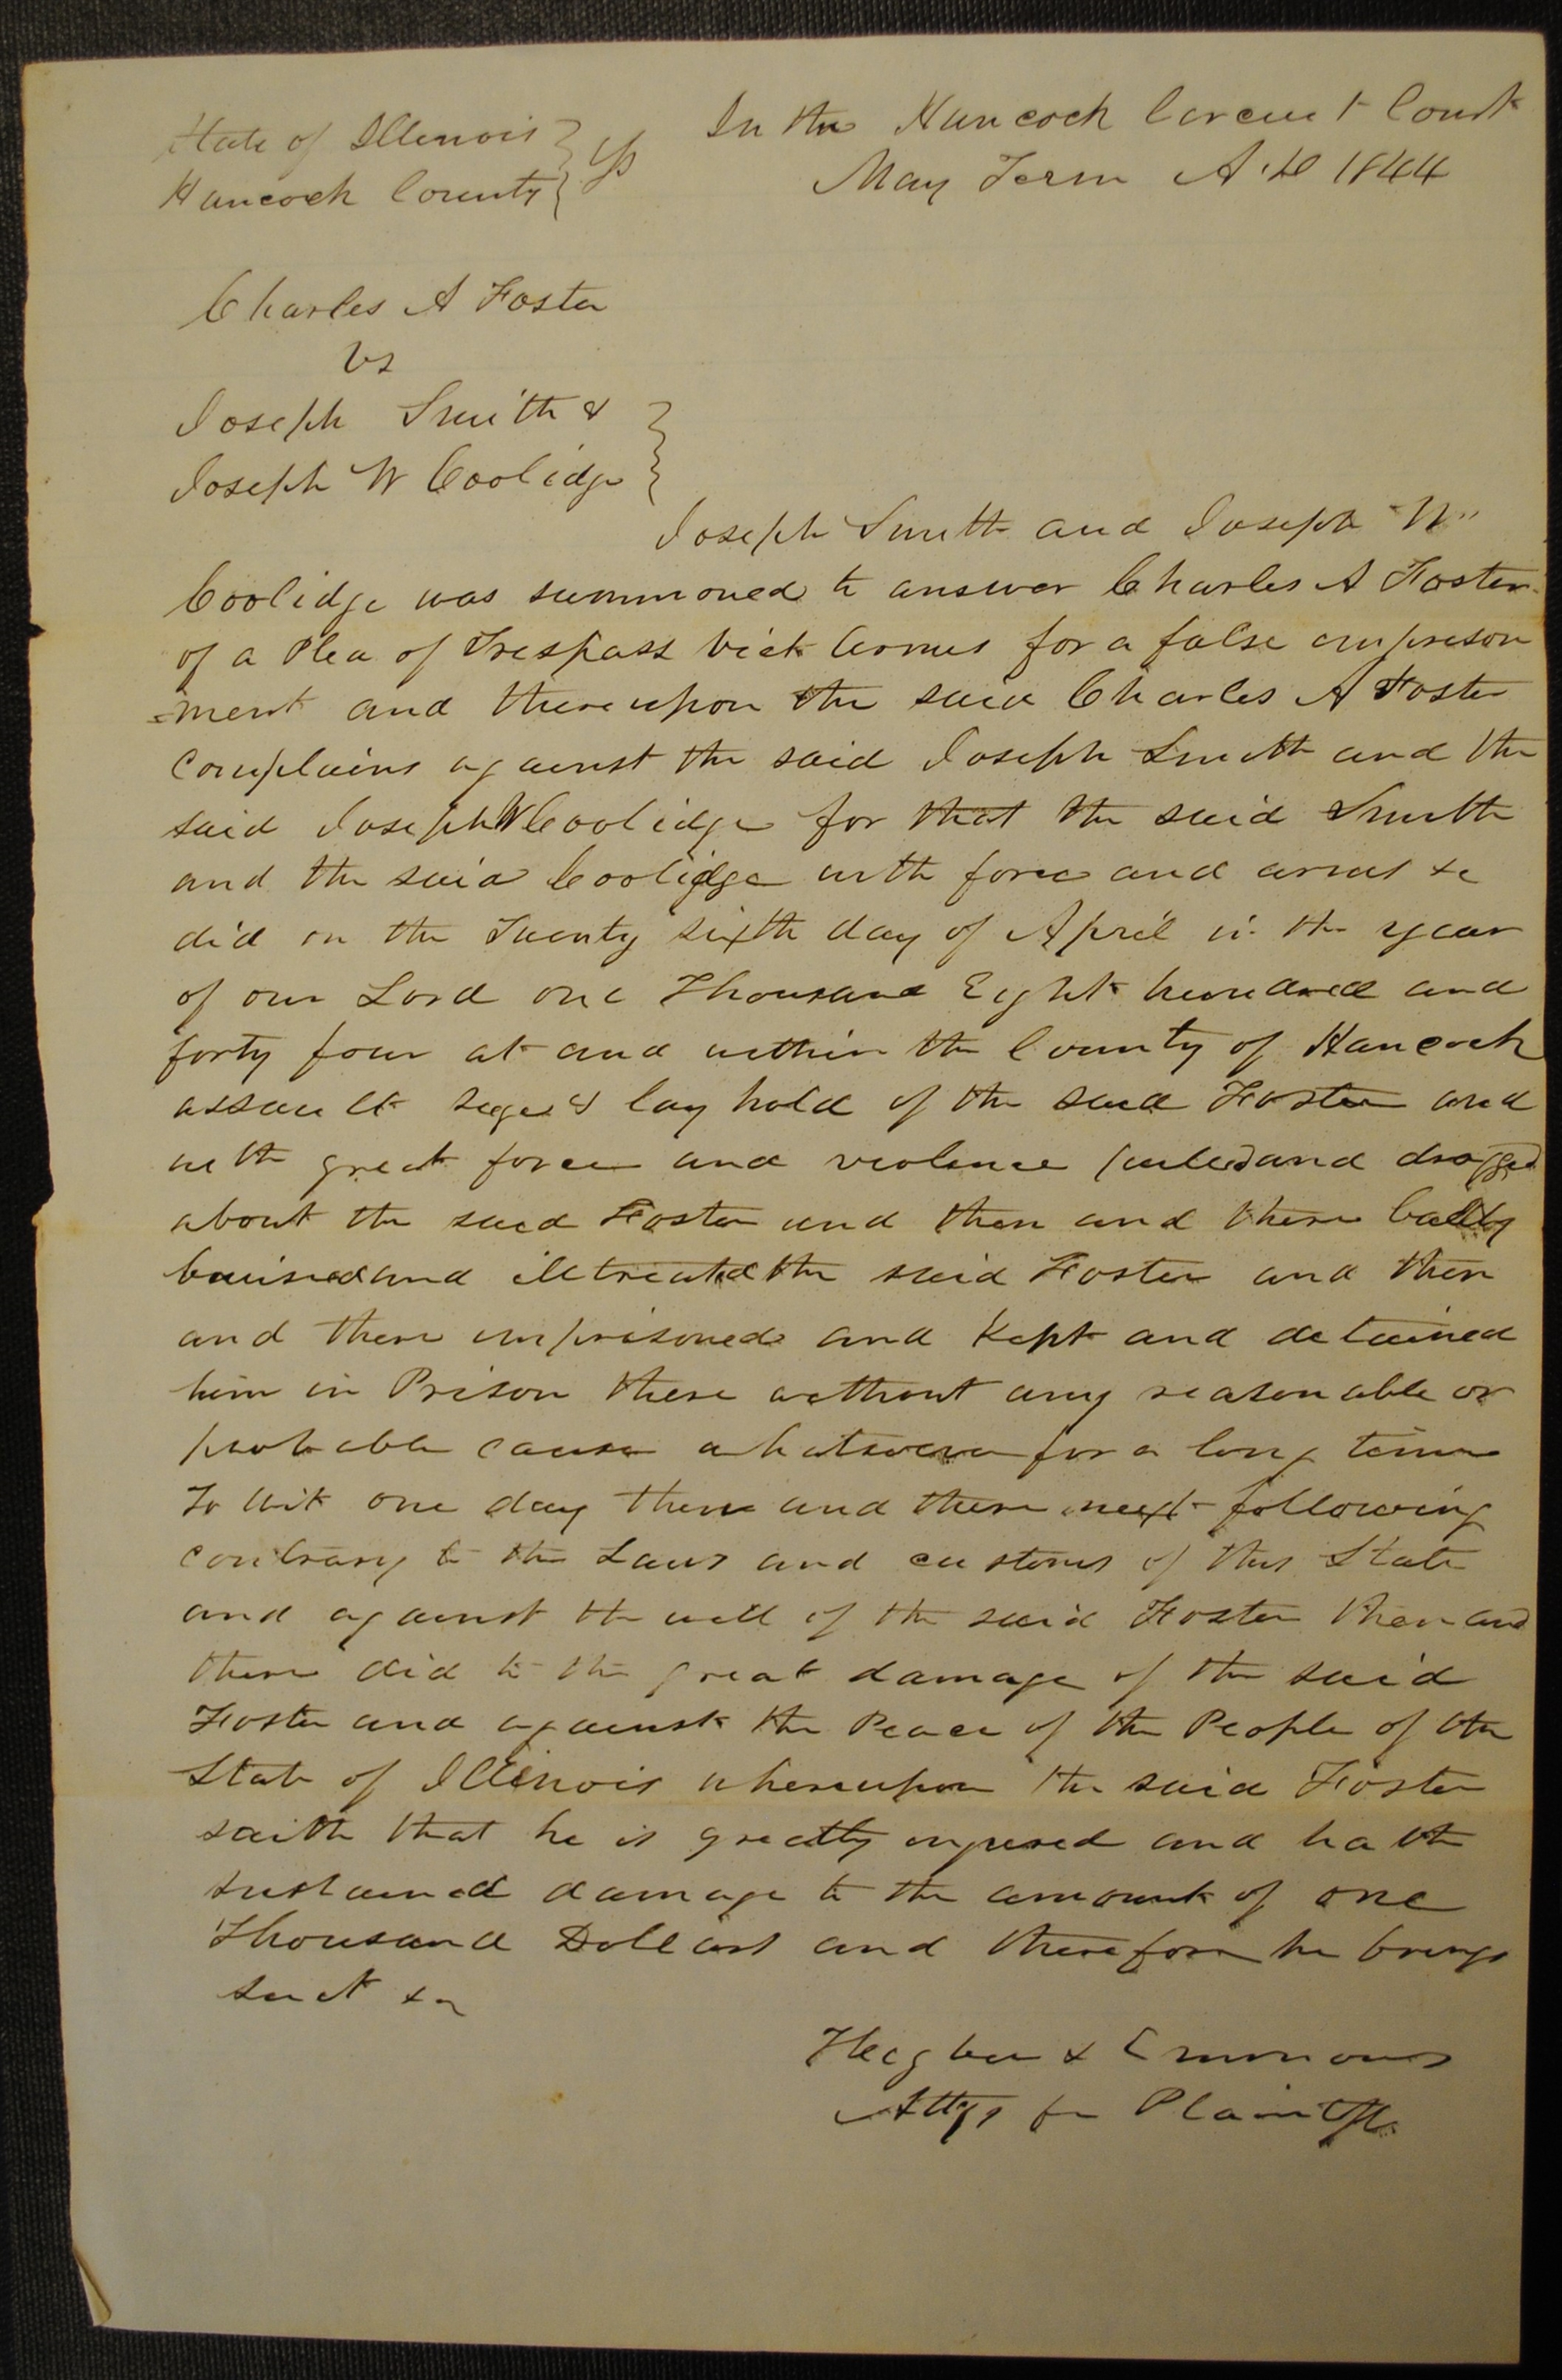 State of Illinois } ss In the Hancock Circuit Court
Hancock County } May Term A.D 1844
Charles A Foster
vs
Joseph Smith & }
Joseph W Coolidge }
Joseph Smith and Joseph W"
Coolidge was summoned to answer Charles A Foster
of a Plea of Trespass vi et Armes for a false imprison
=ment and thereupon the said Charles A Foster
complains against the said Joseph Smith and the
said Joseph W Coolidge for that the said Smith
and the said Coolidge with force and arms &c
did on the Twenty sixth day of April in the year
of our Lord one Thousand Eight hundred and
forty four at and within the County of Hancock
assault & lay hold of the said Foster and
with great force and violence pulled and dragged
about the said Foster and then and there badly
bruised and illtreated the said Foster and then
and there imprisoned and Kept and detained
him in Prison there without any reasonable or
probable cause whatsoever for a long time
To wit one day then and there next following
contrary to the Laws and customs of this State
and against the will of the said Foster then and
there did to the great damage of the said
Foster and against the Peace of the People of the
State of Illinois whereupon the said Foster
saith that he is greatly injured and hath
sustained damage to the amount of one
Thousand Dollars and therefore he brings
suit &c
& Emmons
Attys for Plaintiff